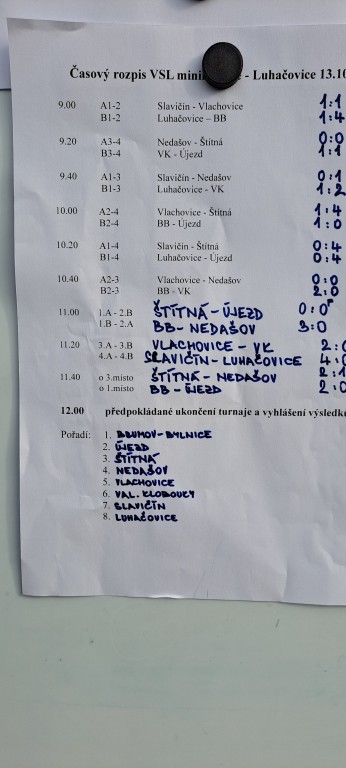 Časový rozpis VSL mini - Luhačovice 13.10
9.00 A1-2 Slavičín - Vlachovice 1:1
B1-2 Luhačovice – BB 1:4
9.20 A3-4 Nedašov - Štítná 0:0
B3-4 VK - Újezd 1:1
9.40 A1-3 Slavičín - Nedašov 0:1
B1-3 Luhačovice - VK 1:2
10.00 A2-4 Vlachovice - Štítná 1:4
B2-4 BB - Újezd 1:0
10.20 A1-4 Slavičín - Štítná 0:4
B1-4 Luhačovice - Újezd 0:4
10.40 A2-3 Vlachovice - Nedašov 0:0
B2-3 BB - VK 2:0
11.00 1.A - 2.B ŠTÍTNÁ - ÚJEZD 0:0
1.B - 2.A BB - NEDAŠOV 3:0
11.20 3.A - 3.B VLACHOVICE - VK 2:
4.A - 4.B SLAVIČÍN - LUHAČOVICE 4:
11.40 o 3.místo ŠTÍTNÁ - NEDAŠOV 2:1
o 1.místo BB - ÚJEZD 2:
12.00 předpokládané ukončení turnaje a vyhlášení výsledk
Pořadí: 1. BRUMOV-BYLNICE
2. ÚJEZD
3. ŠTÍTNÁ
4. NEDAŠOV
5. VLACHOVICE
6. VAL. KLOBOUKY
7. SLAVIČÍN
8. LUHAČOVICE